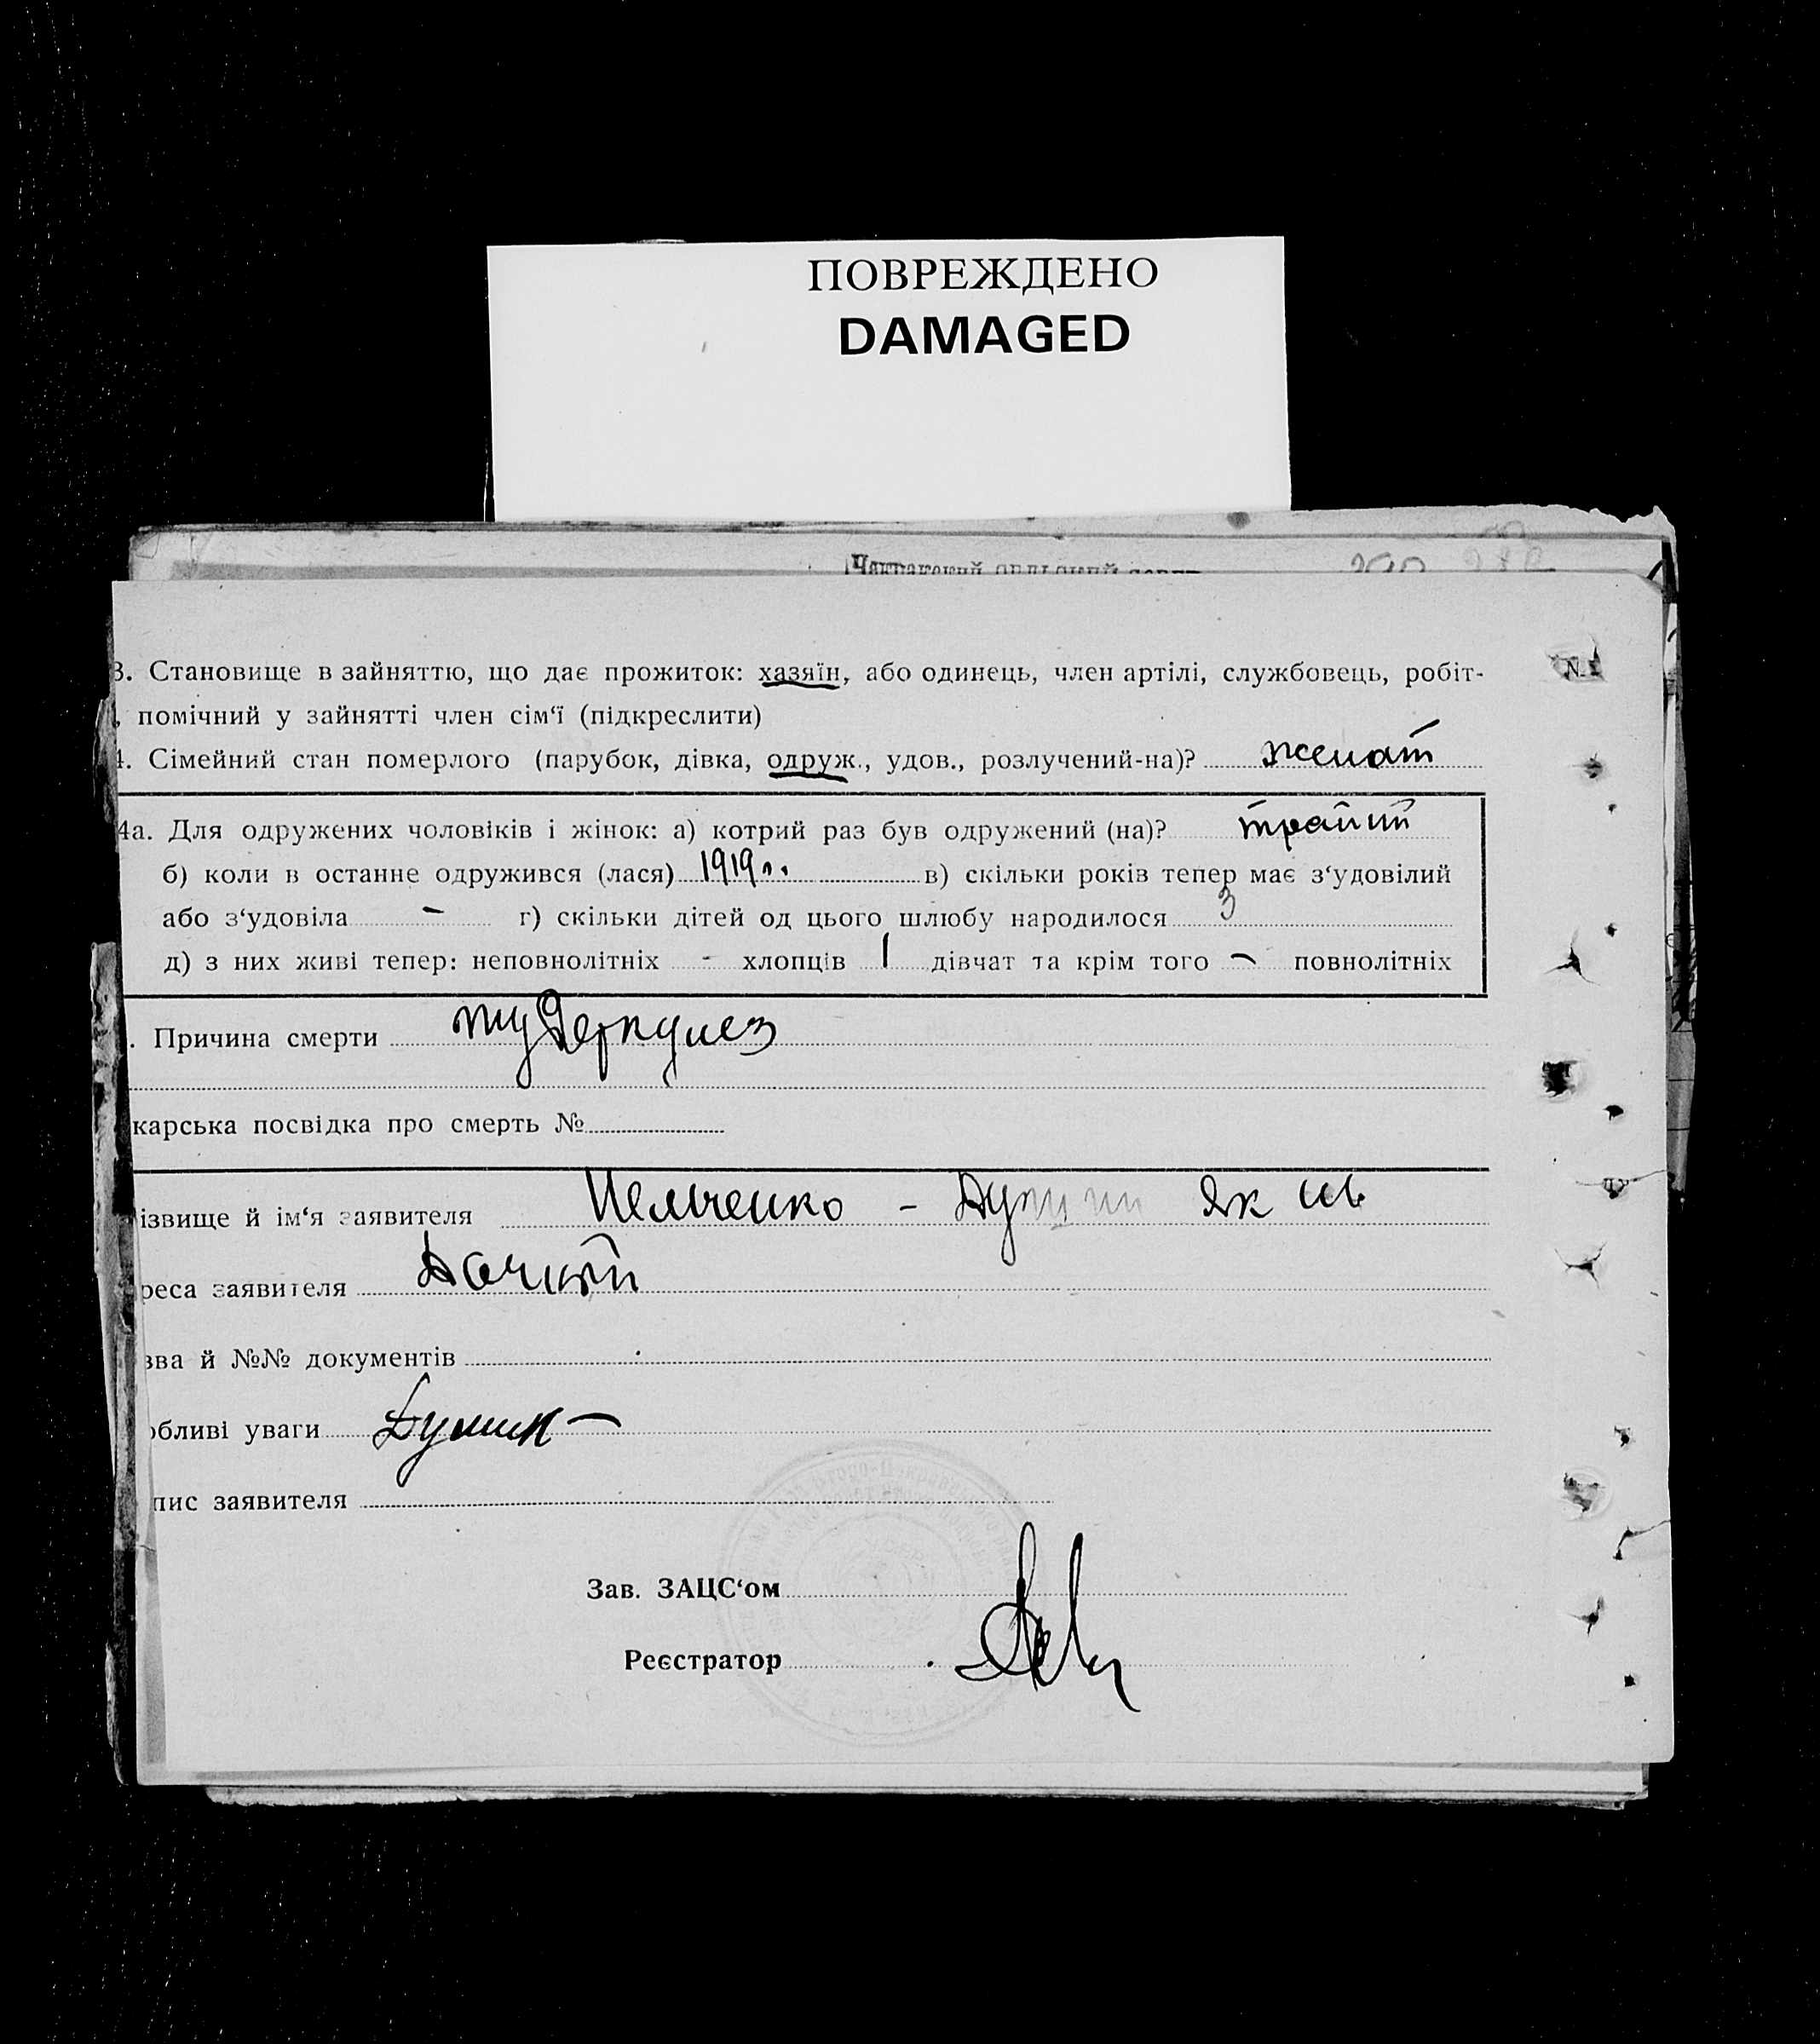 ПОВРЕЖДЕНО
DAMAGED
3. Становище в зайняттю, що дає прожиток: хазяїн, або одинець, член артілі, службовець, робіт-
, помічний у зайнятті член сім‘ї (підкреслити)
4. Сімейний стан померлого (парубок, дівка, одруж., удов., розлучений-на)? женат
4а. Для одружених чоловіків і жінок: а) котрий раз був одружений (на)?
б) коли в останне одружився (лася) 1919 г. в) скільки років тепер має з‘удовілий
або з‘удовіла - г) скільки дітей од цього шлюбу народилося 3
д) з них живі тепер: неповнолітніх - хлопців 1 дівчат та крім того - повнолітніх
. Причина смерти туберкулез
карська посвідка про смерть №
ізвище й ім‘я заявителя
реса заявителя
зва й №№ документів
обливі уваги
пис заявителя
Зав. ЗАЦС‘ом
Реєстратор